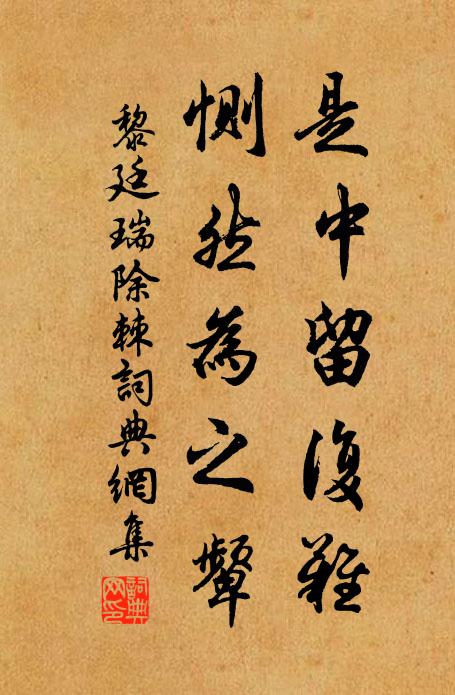 是中留復難
惻然為之顰
黎廷瑞除棘詞典網集
詞典網印